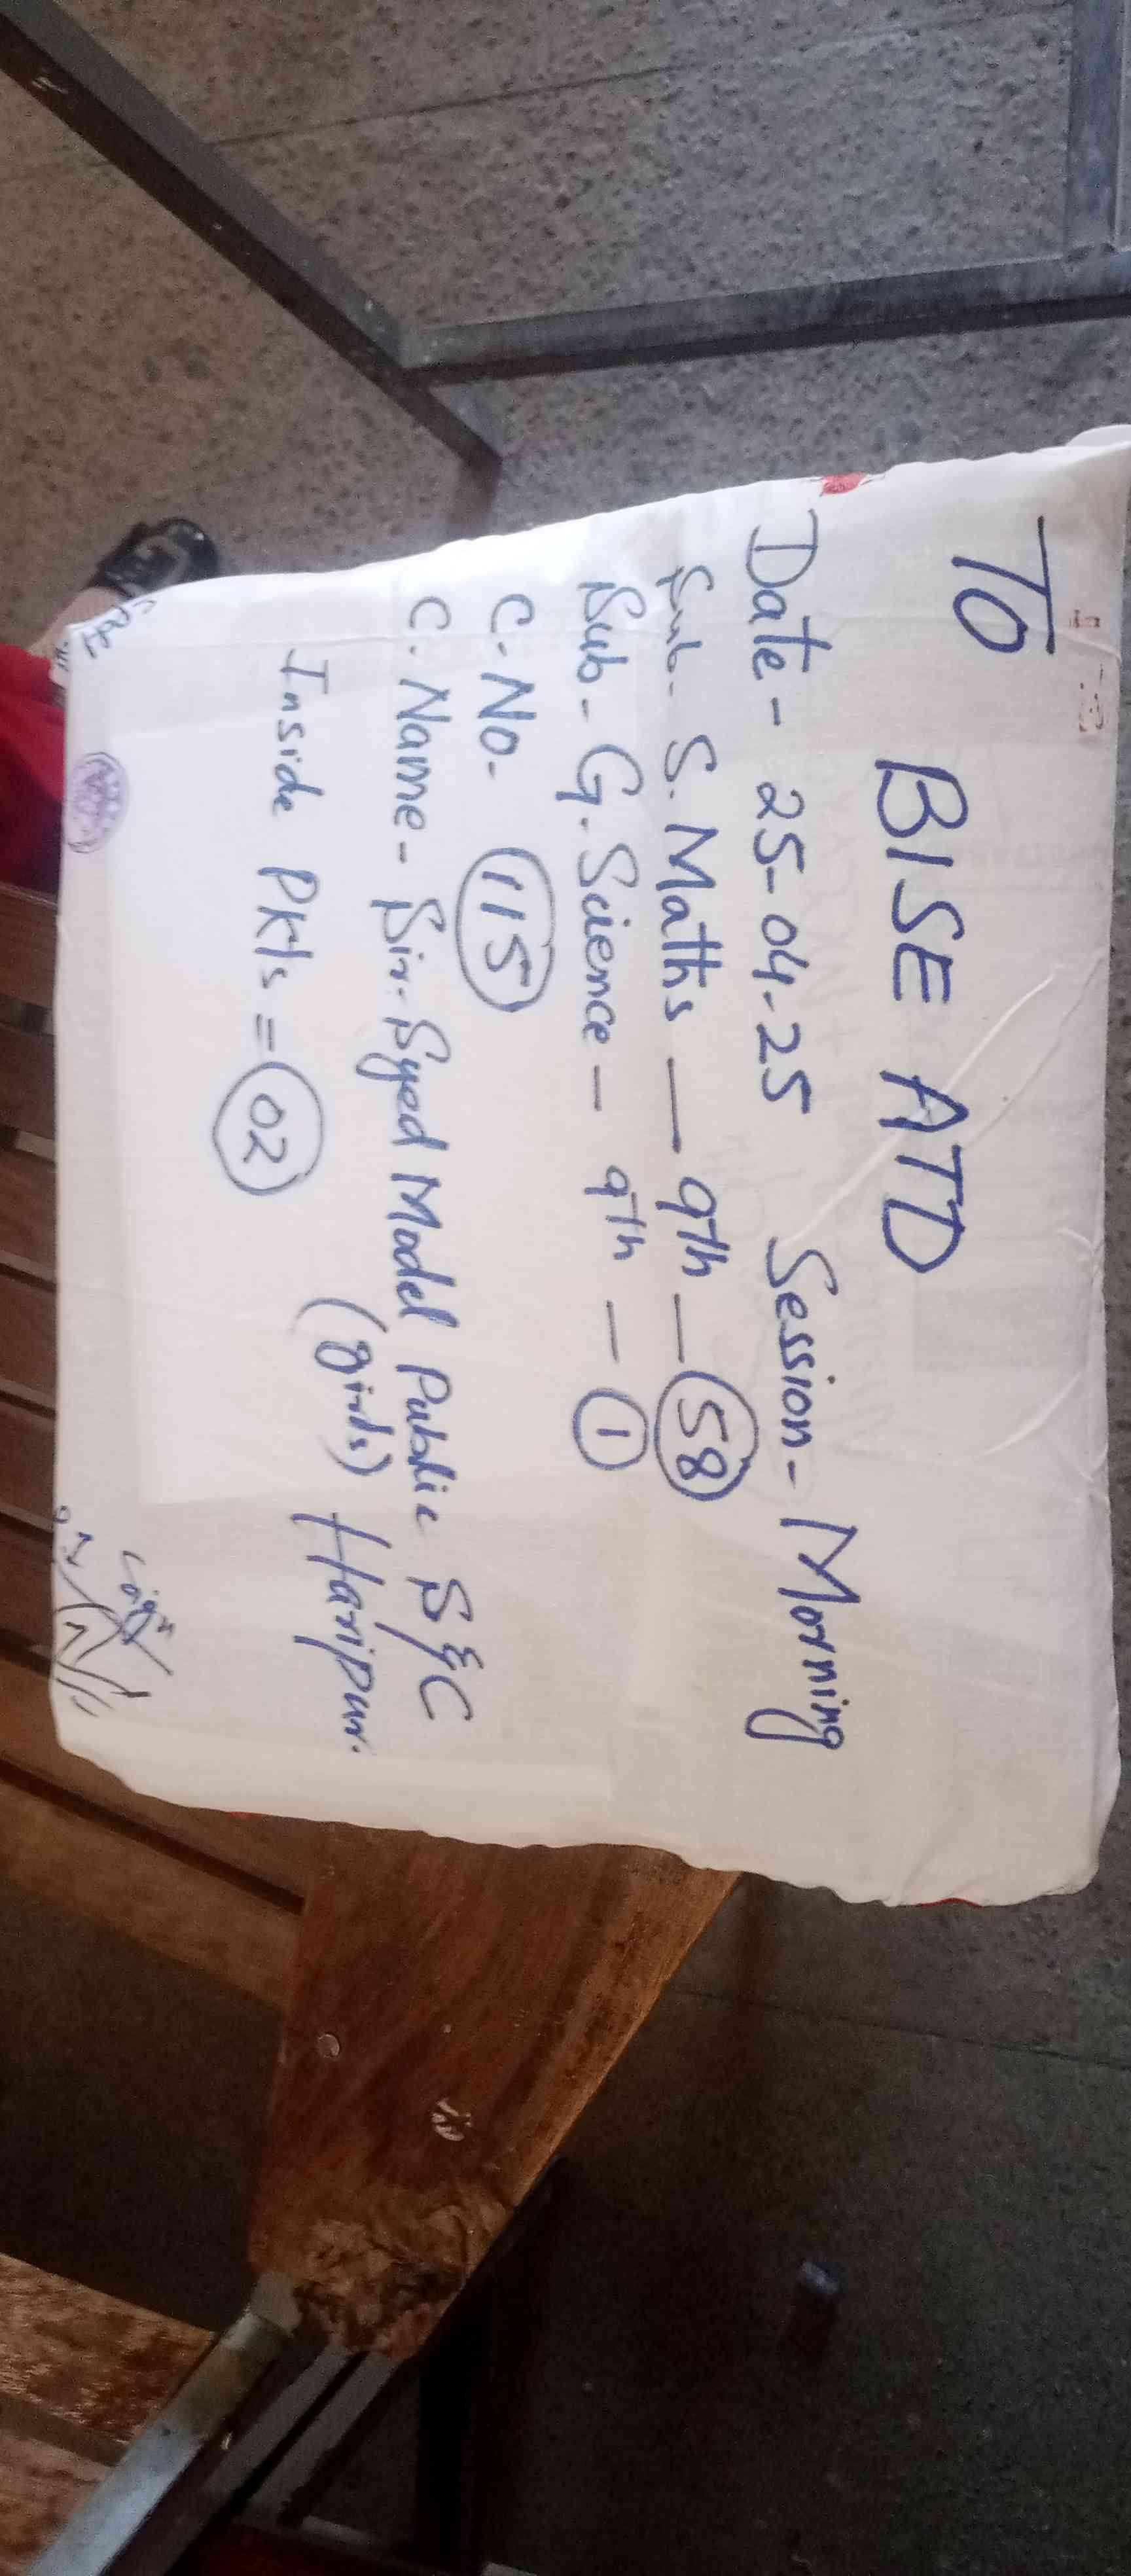 To
BISE ATD
Date - 25-04-25 Session - Morning
Sub - S. Maths — 9th — 58
Sub - G. Science — 9th — 1
C. No. 115
C. Name - Sir Syed Model Public S&C
(Girls) Haripur.
Inside Pkts = 02